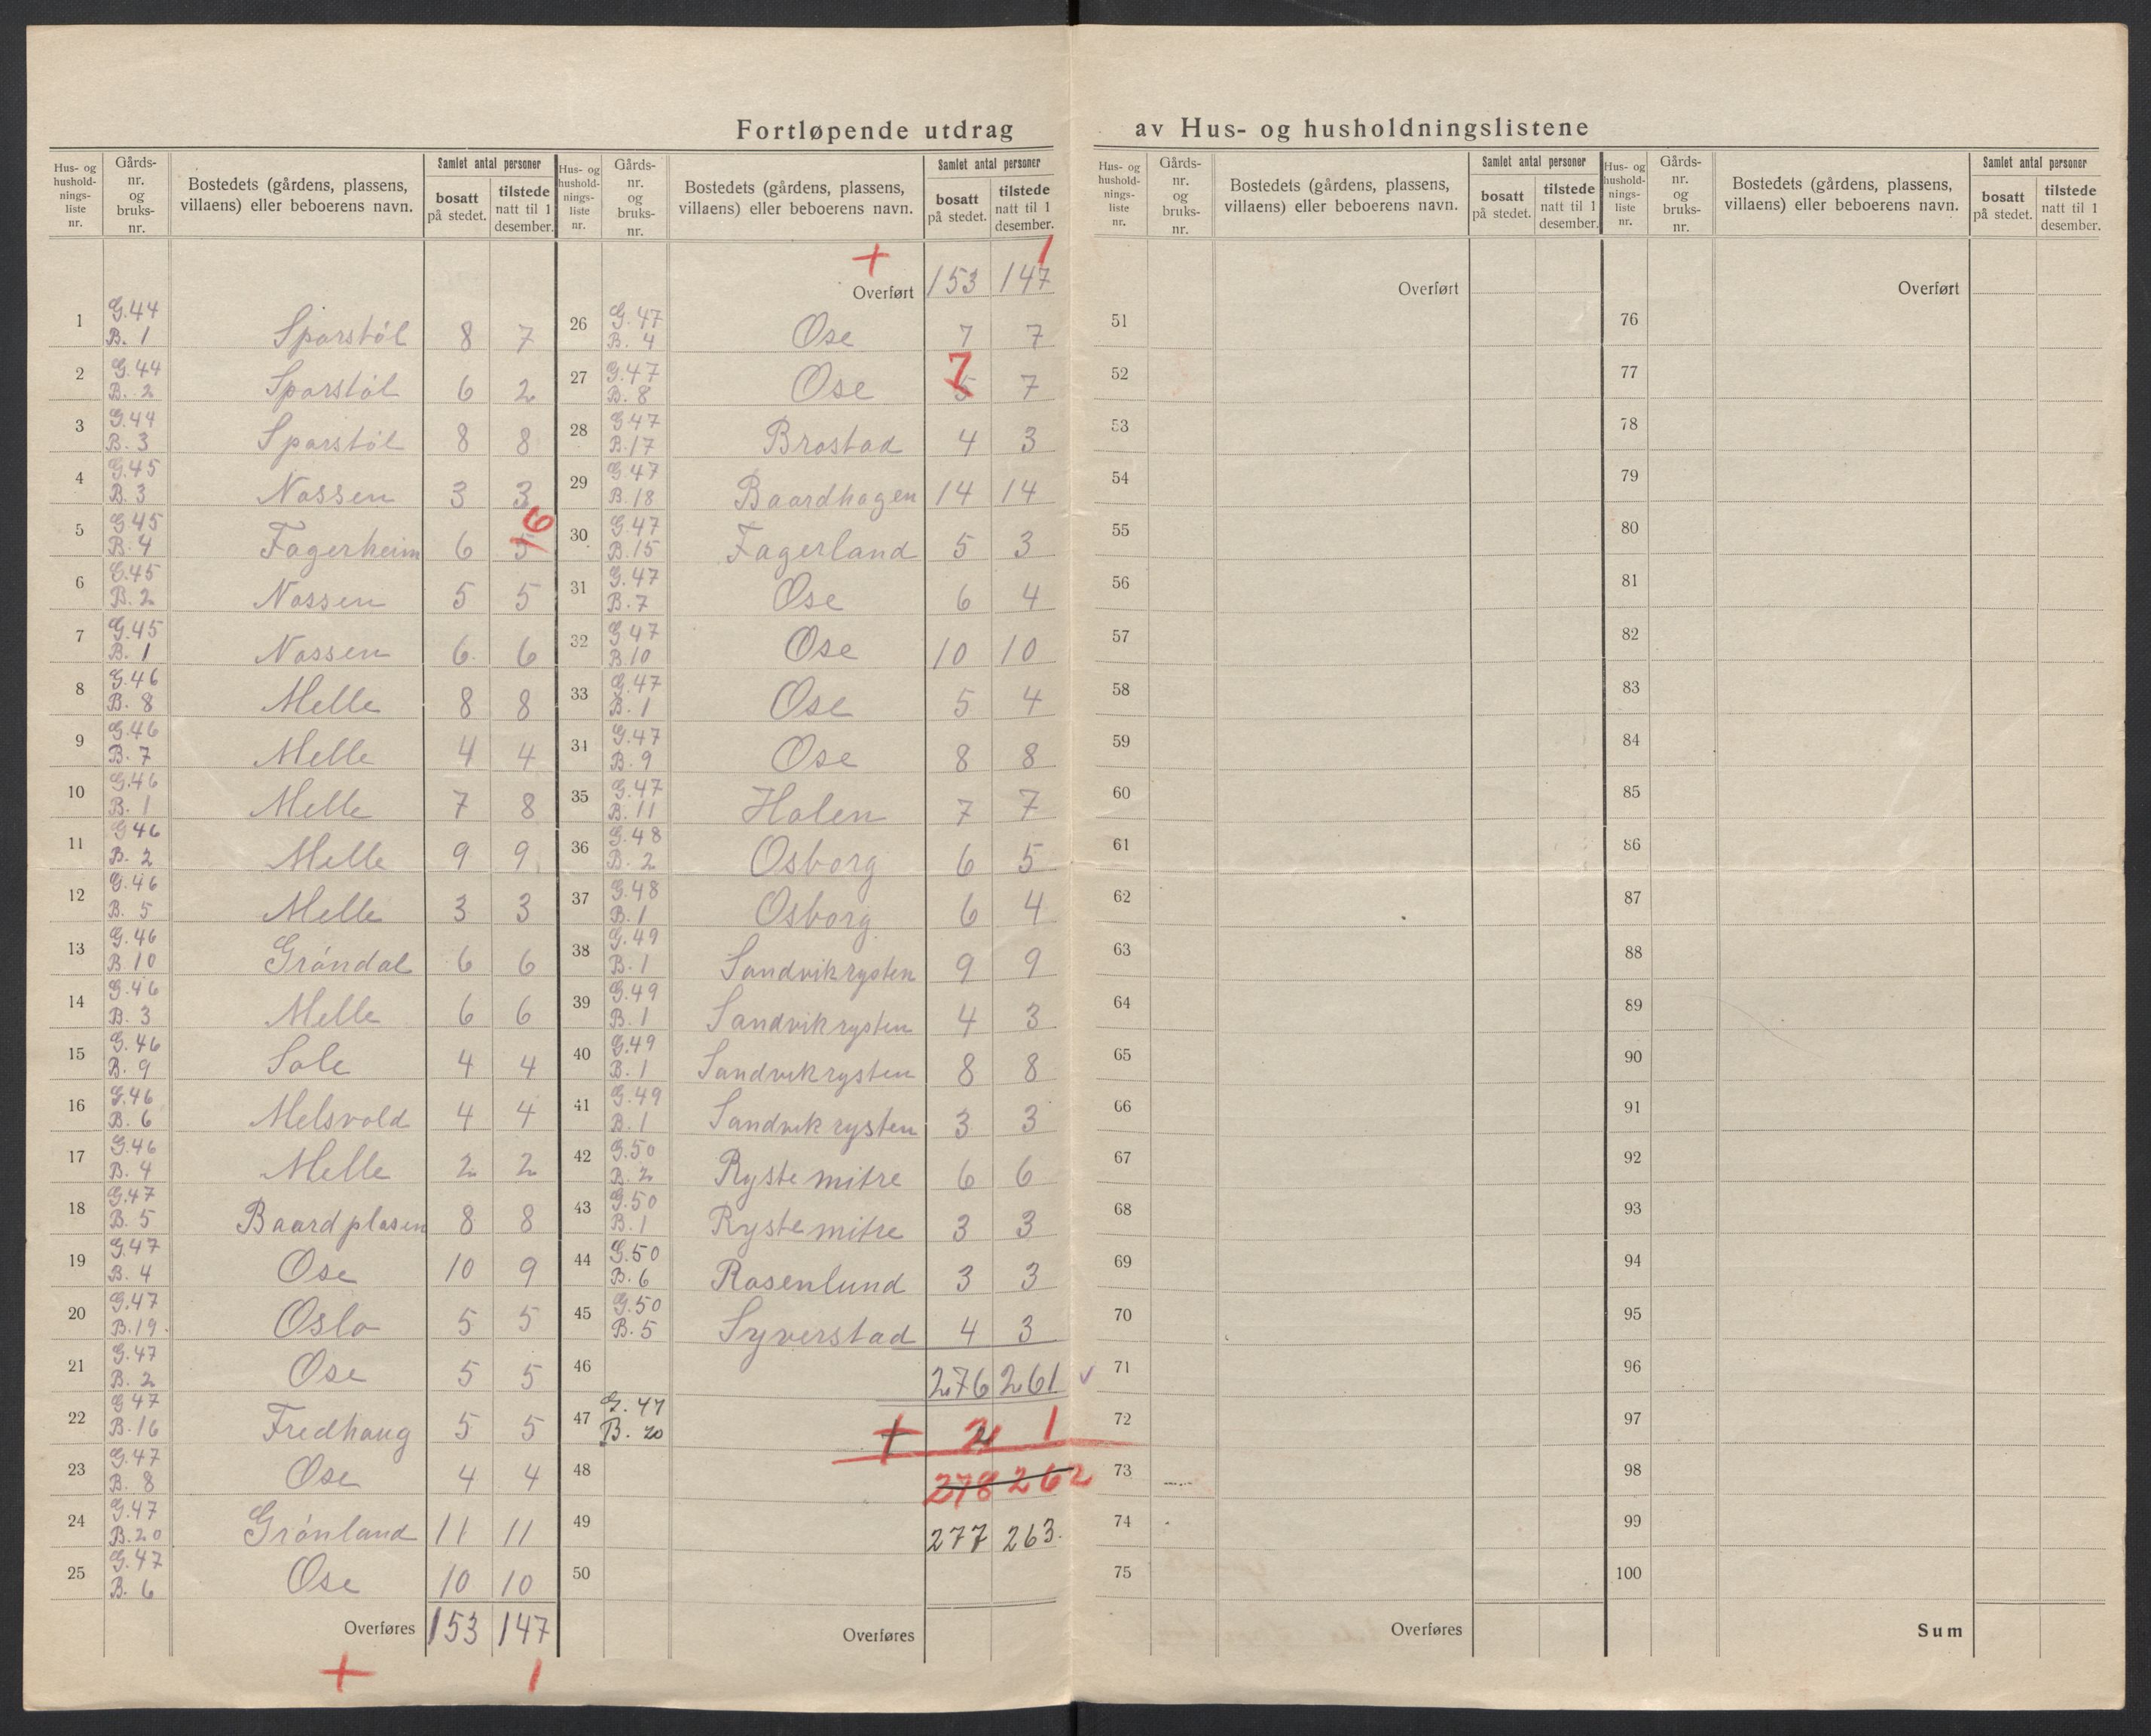 Fortløpende utdrag av Hus- og husholdningslistene
Hus- og hushold-nings-liste nr. | Gårds-nr. og bruks-nr. | Bostedets (gårdens, plassens, villaens) eller beboerens navn. | Samlet antal personer | bosatt på stedet. | tilstede natt til 1 desember.
1 G.44 B. 1 Sporstøl 8 7
2 G.44 B. 2 Sporstøl 6 2
3 G.44 B. 3 Sporstøl 8 8
4 G.45 B. 3 Nossen 3 3
5 G.45 B. 4 Fagerheim 6 5 6
6 G.45 B. 2 Nossen 5 5
7 G.45 B. 1 Nossen 6 6
8 G.46 B. 8 Melle 8 8
9 G.46 B. 7 Melle 4 4
10 G.46 B. 1 Melle 7 8
11 G.46 B. 2 Melle 9 9
12 G.46 B. 5 Melle 3 3
13 G.46 B 10 Gröndal 6 6
14 G.46 B. 3 Melle 6 6
15 G.46 B. 9 Sole 4 4
16 G.46 B. 6 Melsvold 4 4
17 G.46 B. 4 Melle 2 2
18 G.47 B. 5 Baardplasen 8 8
19 G.47 B. 4 Ose 10 9
20 G.47 B.19. Oslo 5 5
21 G.47 B. 2 Ose 5 5
22 G 47 B.16 Fredhaug 5 5
23 G.47 B. 8 Ose 4 4
24 G.47 B.20 Grönland 11 11
25 G.47 B. 6 Ose 10 10
Overføres 153 147
+ 1
Hus- og hushold-nings-liste nr. | Gårds-nr. og bruks-nr. | Bostedets (gårdens, plassens, villaens) eller beboerens navn. | Samlet antal personer | bosatt på stedet. | tilstede natt til 1 desember.
+ 1
Overført 153 147
26 G.47 B. 4 Ose 7 7
27 G.47 B. 8 Ose 5 7 7
28 G.47 B.17 Brostad 4 3
29 G.47 B.18 Baardhagen 14 14
30 G.47 B.15 Fagerland 5 3
31 G.47 B. 7 Ose 6 4
32 G.47 B.10 Ose 10 10
33 G.47 B. 1 Ose 5 4
34 G.47 B. 9 Ose 8 8
35 G.47 B. 11 Holen 7 7
36 G.48 B. 2 Osborg 6 5
37 G.48 B. 1 Osborg 6 4
38 G.49 B. 1 Sandvikrysten 9 9
39 G.49 B. 1 Sandvikrysten 4 3
40 G.49 B. 1 Sandvikrysten 8 8
41 G.49 B. 1 Sandvikrysten 3 3
42 G.50 B. 2 Ryste mitre 6 6
43 G.50 B. 1 Ryste mitre 3 3
44 G.50 B. 6 Rosenlund 3 3
45 G.50 B. 5 Syverstad 4 3
46 276 261 ✓
47 G. 47 B. 20 + 2 1
48 278 262
49 277 263.
50
Overføres
Hus- og hushold-nings-liste nr. | Gårds-nr. og bruks-nr. | Bostedets (gårdens, plassens, villaens) eller beboerens navn. | Samlet antal personer | bosatt på stedet. | tilstede natt til 1 desember.
Overført
51
52
53
54
55
56
57
58
59
60
61
62
63
64
65
66
67
68
69
70
71
72
73
74
75
Overføres
Hus- og hushold-nings-liste nr. | Gårds-nr. og bruks-nr. | Bostedets (gårdens, plassens, villaens) eller beboerens navn. | Samlet antal personer | bosatt på stedet. | tilstede natt til 1 desember.
Overført
76
77
78
79
80
81
82
83
84
85
86
87
88
89
90
91
92
93
94
95
96
97
98
99
100
Sum